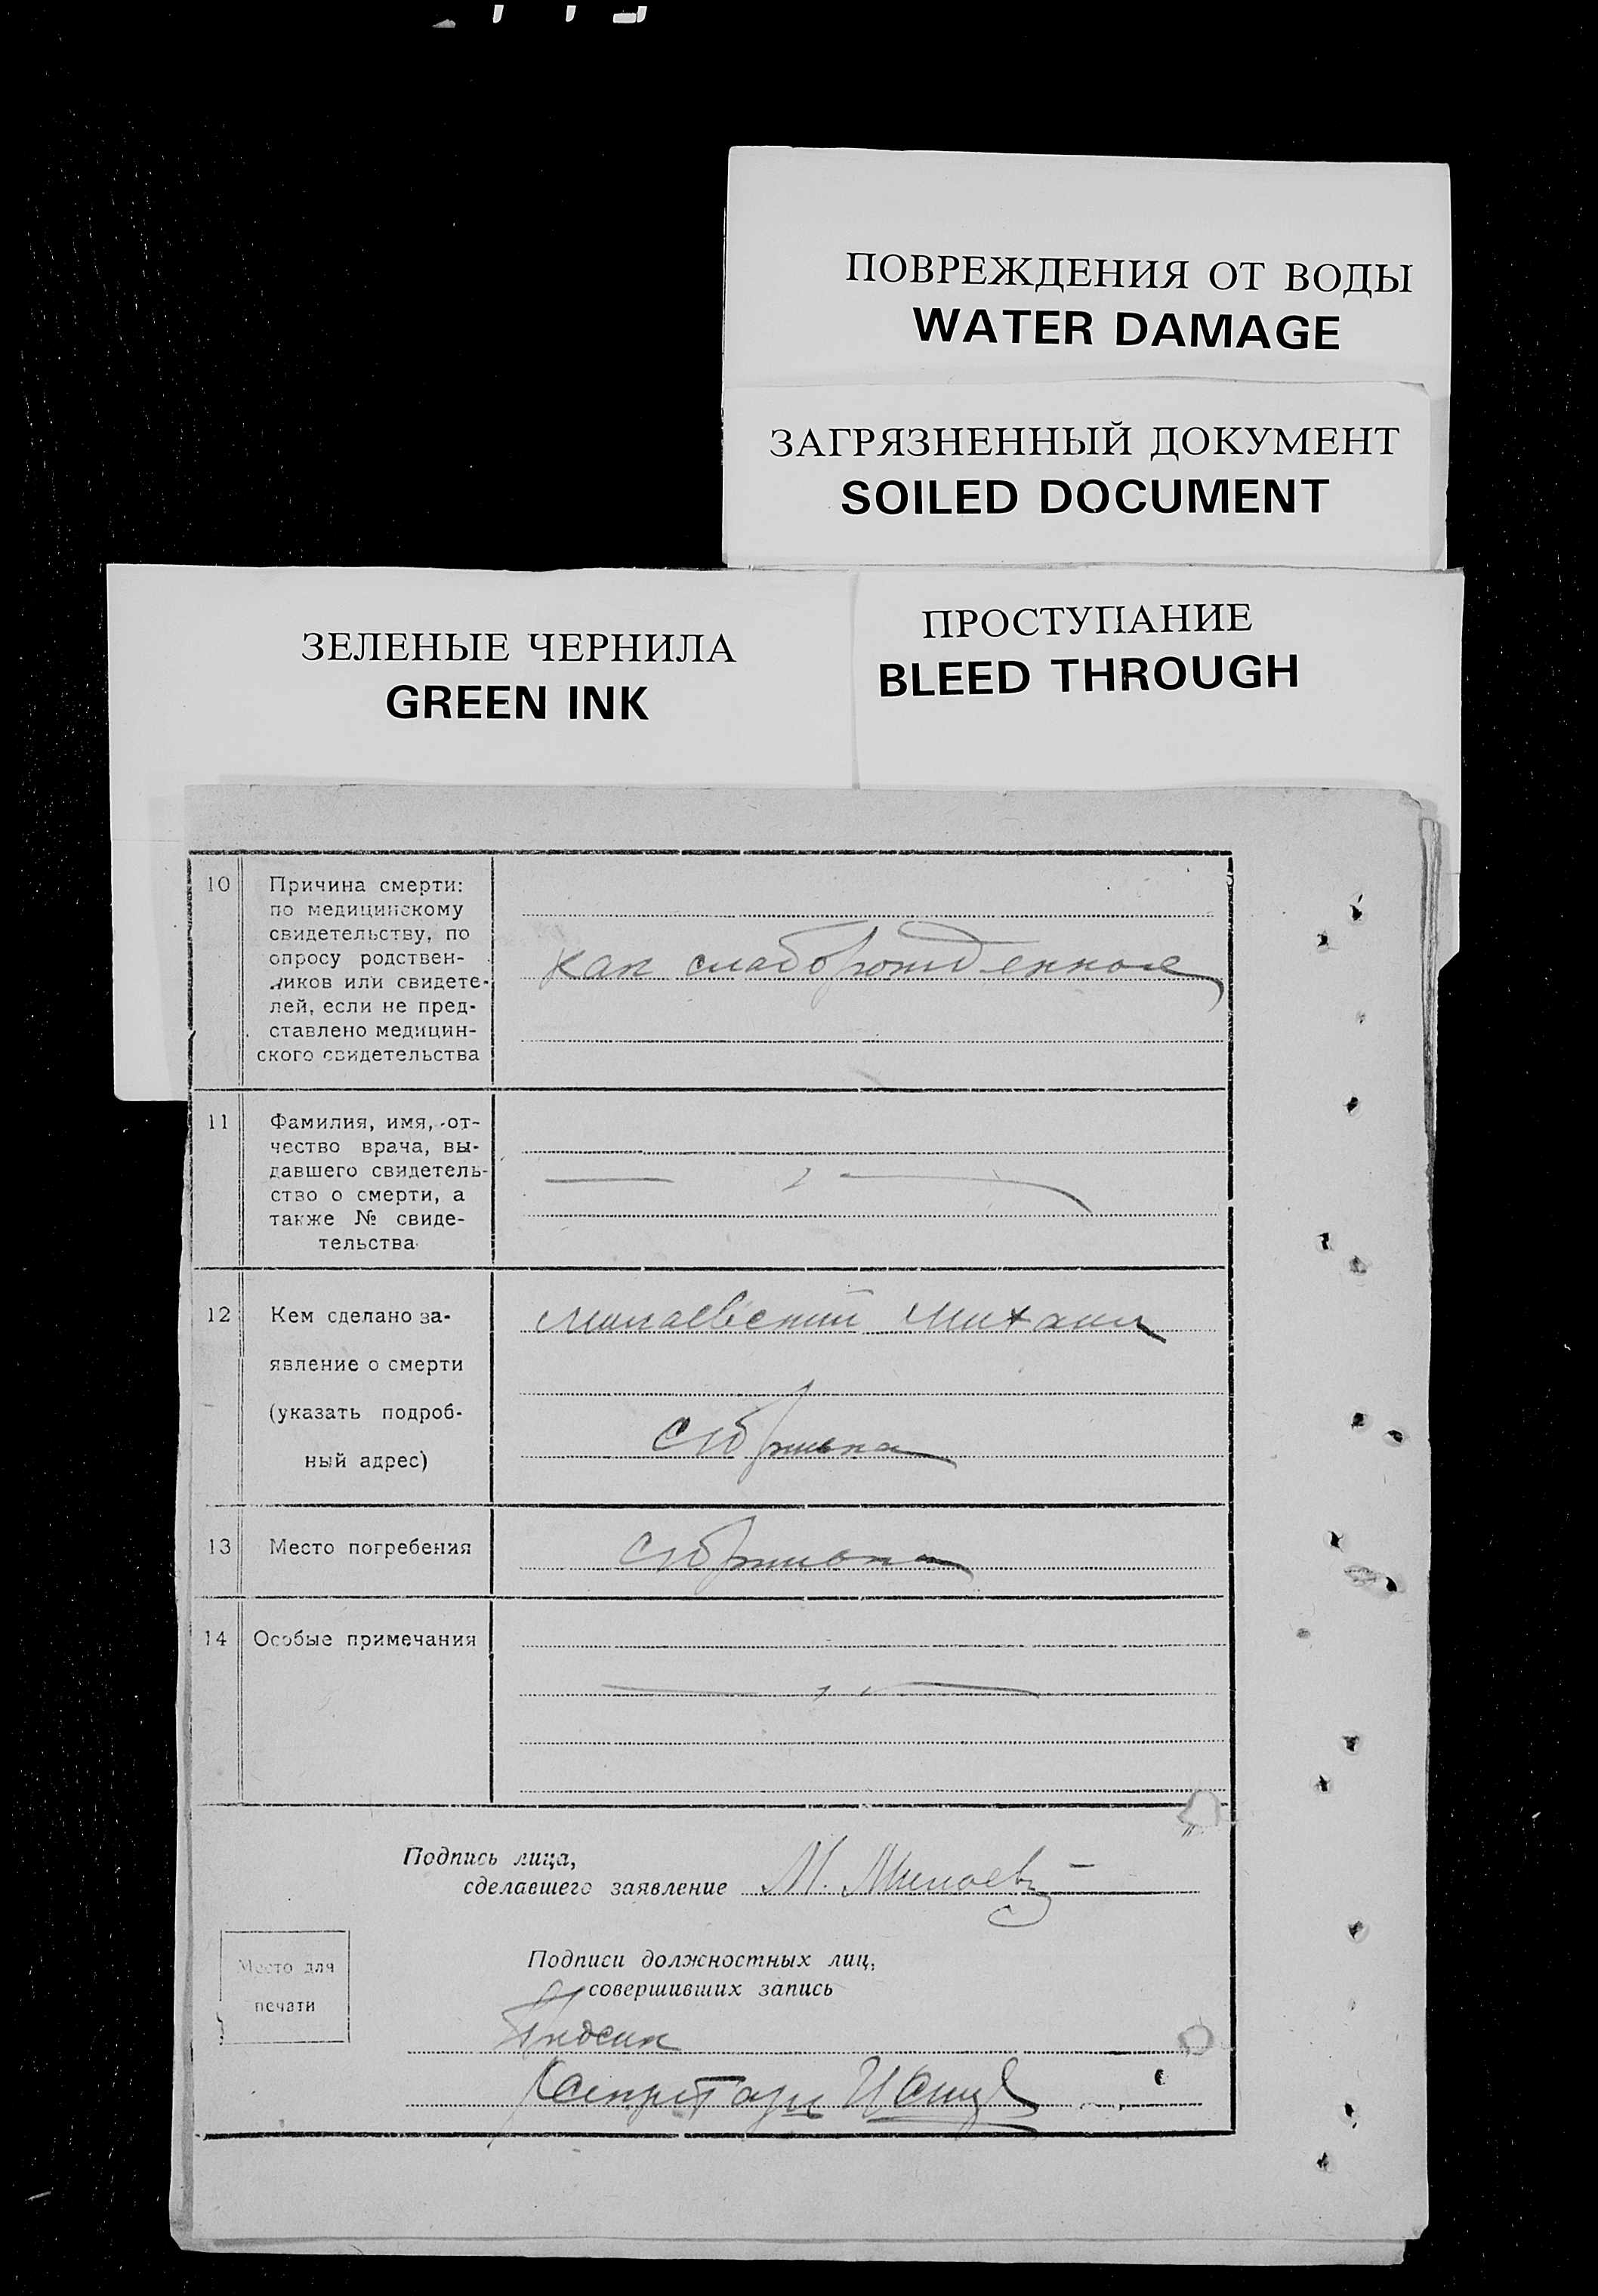 ПОВРЕЖДЕНИЯ ОТ ВОДЫ
WATER DAMAGE
ЗАГРЯЗНЕННЫЙ ДОКУМЕНТ
SOILED DOCUMENT
ЗЕЛЕНЫЕ ЧЕРНИЛА
GREEN INK
ПРОСТУПАНИЕ
BLEED THROUGH
10
Причина смерти:
по медицинскому
свидетельству, по
опросу родствен-
ников или свидете-
лей, если не пред-
ставлено медицин-
ского свидетельства
как слаборожденное
11
Фамилия, имя, от-
чество врача, вы-
давшего свидетель-
ство о смерти, а
также № свиде-
тельства
12
Кем сделано за-
явление о смерти
(указать подроб-
ный адрес)
Михаил
13
Место погребения
14
Особые примечания
Подпись лица,
сделавшего заявление М.
Подписи должностных лиц,
совершивших запись
Место для
печати
Секретарь